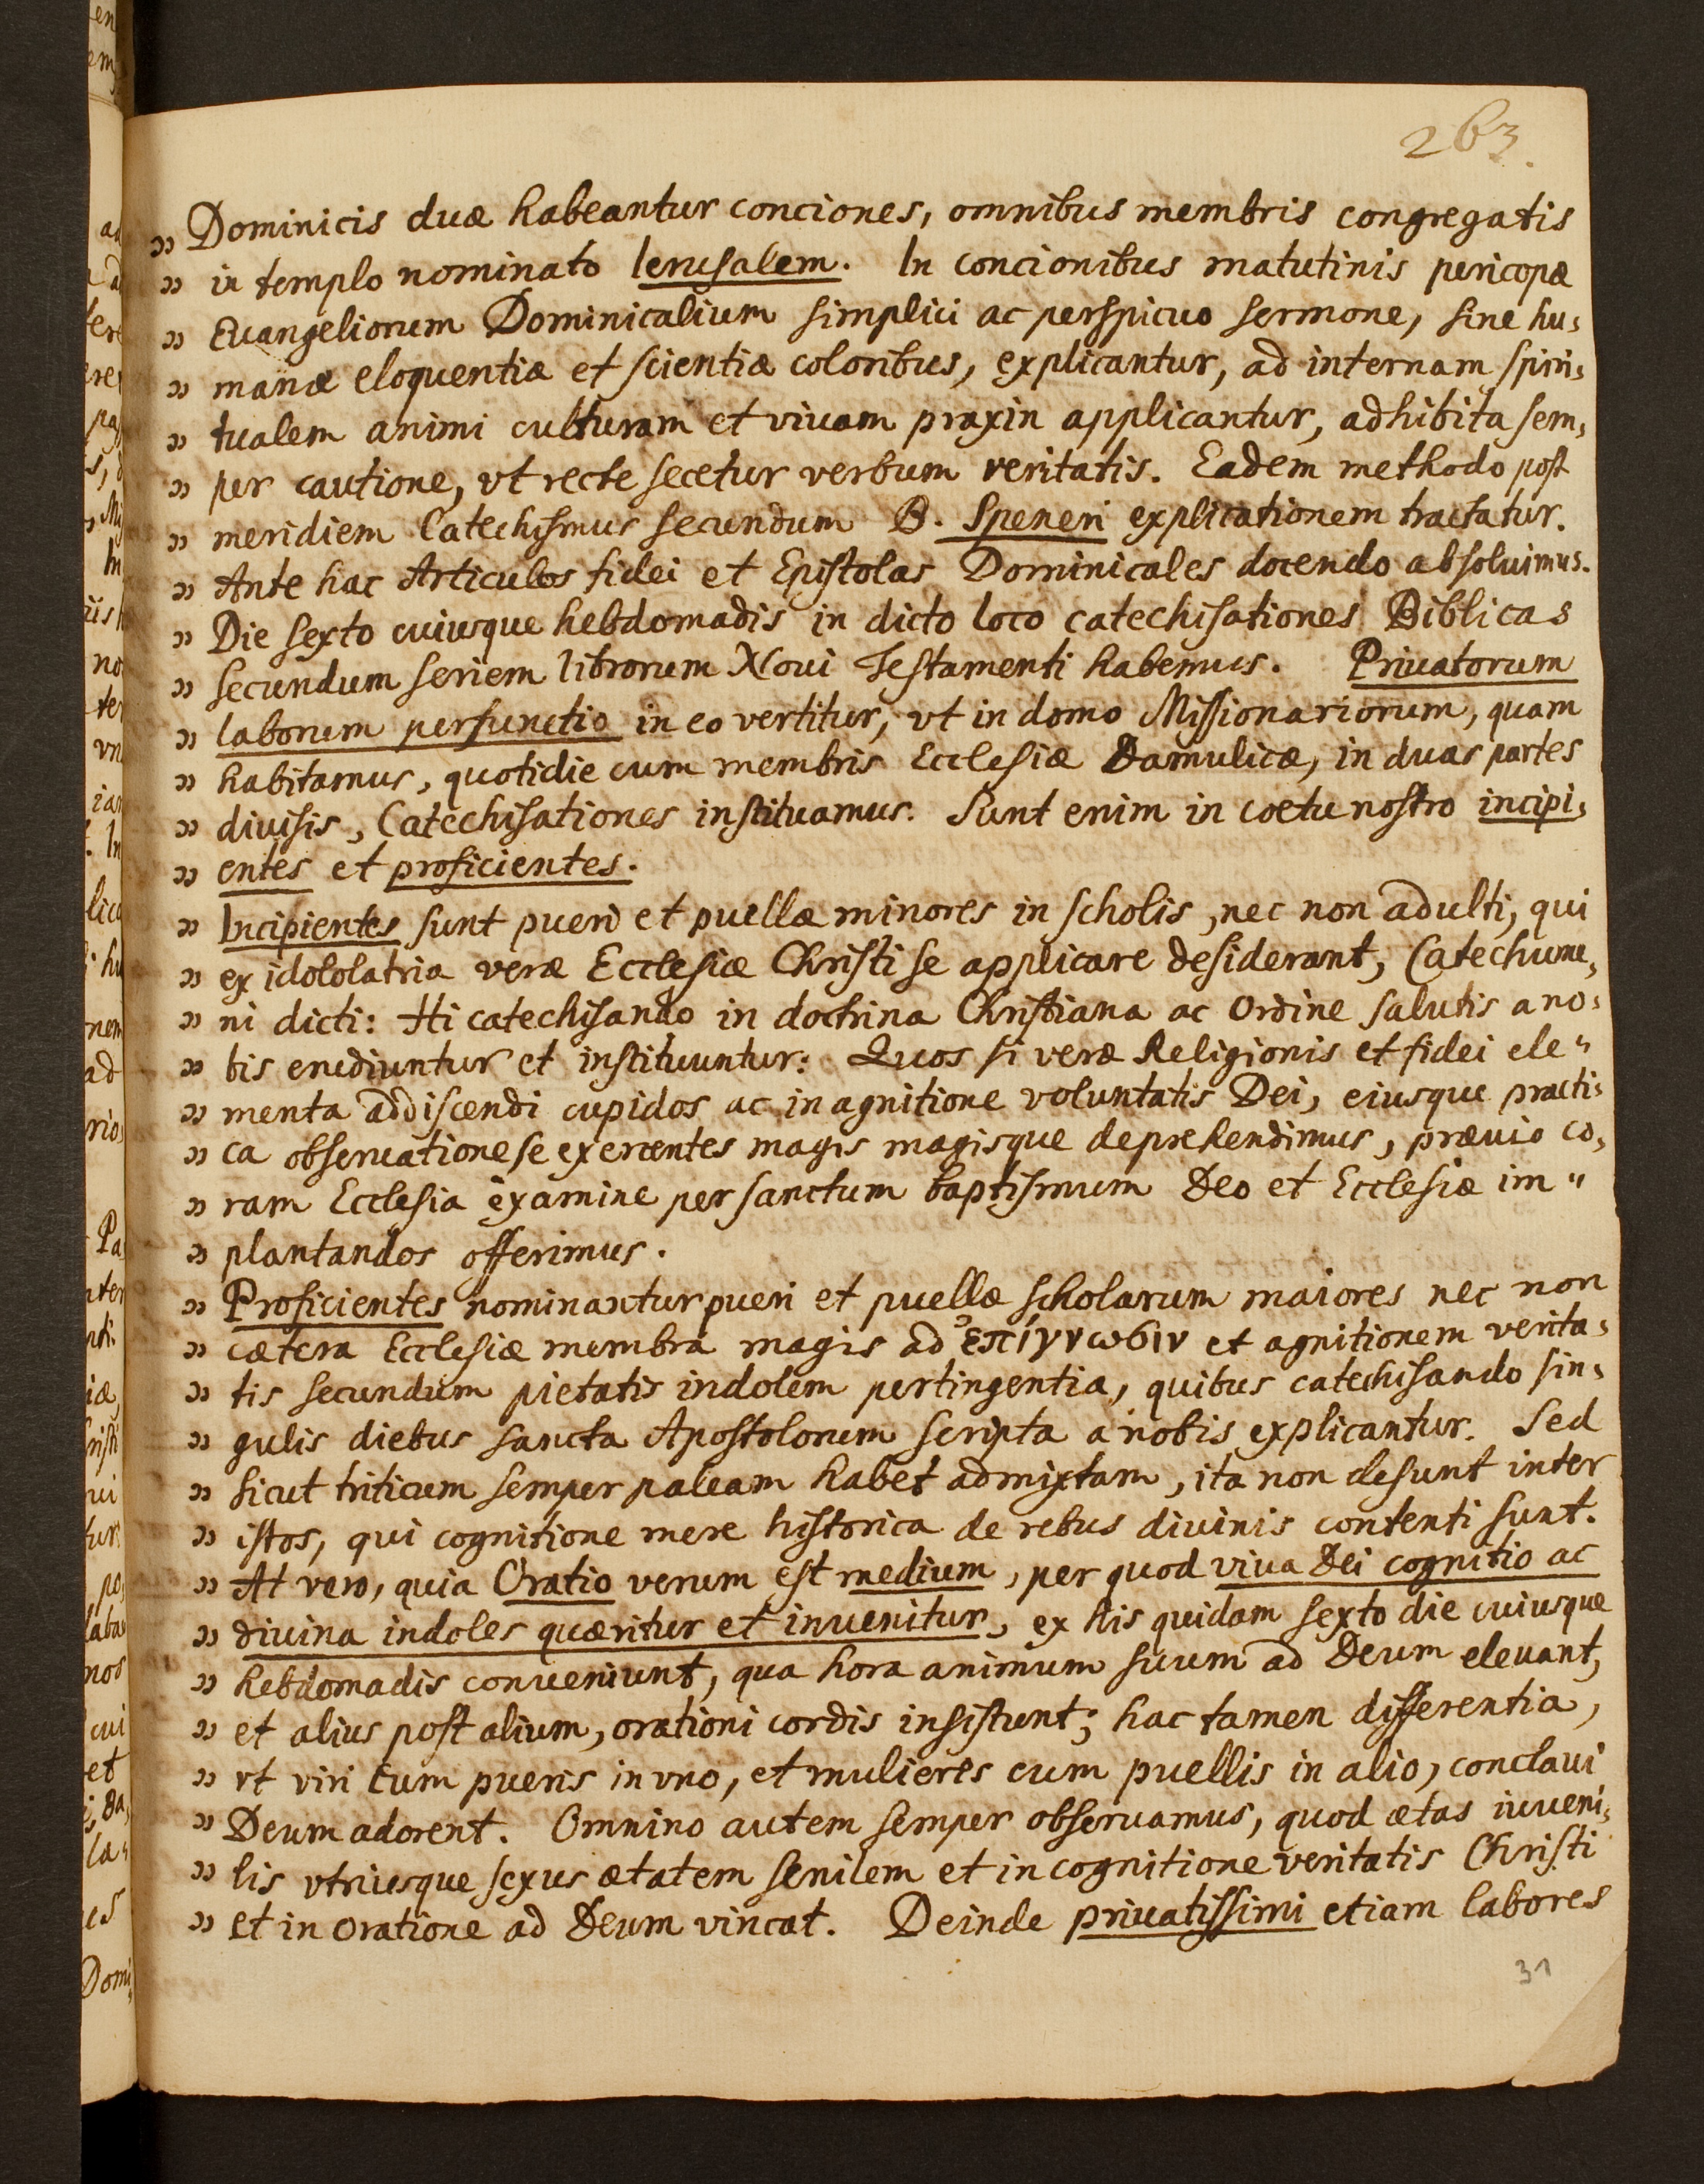 263.
„ Dominicis duæ habeantur conciones, omnibus membris congregatis
„ in templo nominato Ierusalem. In concionibus matutinis pericopæ
„ Euangeliorum Dominicalium simplici ac perspicuo sermone, sine hu,
„ manæ eloquentiæ et scientiæ coloribus, explicantur, ad internam spiri,
„ tualem animi culturam et viuam praxin applicantur, adhibita sem,
„ per cautione, vt recte secetur verbum veritatis. Eadem methodo post
„ meridiem Catechismus secundum B. Speneri explicationem tractatur.
„ Ante hac Articulos fidei et Epistolas Dominicales docendo absoluimus.
„ Die sexto cuiusque hebdomadis in dicto loco catechisationes Biblicas
„ secundum seriem librorum Noui Testamenti habemus. Priuatorum
„ laborum perfunctio in eo vertitur, vt in domo Missionariorum, quam
„ habitamus, quotidie cum membris Ecclesiæ Damulicæ, in duas partes
„ diuisis, Catechisationes instituamus. Sunt enim in coetu nostro incipi,
„ entes et proficientes.
„ Incipientes sunt pueri et puellæ minores in scholis, nec non adulti, qui
„ ex idololatria veræ Ecclesiæ Christi se applicare desiderant, Catechume,
„ ni dicti: Hi catechisando in doctrina Christiana ac Ordine salutis a no,
„ bis erudiuntur et instituuntur: Quos si veræ Religionis et fidei ele„
„ menta addiscendi cupidos ac in agnitione voluntatis Dei, eiusque practi,
„ ca obseruatione se exercentes magis magisque deprehendimus, præuio co,
„ ram Ecclesia examine per sanctum baptismum Deo et Ecclesiæ im„
„ plantandos offerimus.
„ Proficientes nominantur pueri et puellæ scholarum maiores nec non
„ cætera Ecclesiæ membra magis ad ἐπίγνωσιν et agnitionem verita,
„ tis secundum pietatis indolem pertingentia, quibus catechisando sin,
„ gulis diebus sancta Apostolorum scripta a nobis explicantur. Sed
„ sicut triticum semper paleam habet admixtam, ita non desunt inter
„ istos, qui cognitione mere historica de rebus diuinis contenti sunt.
„ At vero, quia Oratio verum est medium, per quod viua Dei cognitio ac
„ diuina indoles quæritur et inuenitur, ex his quidam sexto die cuiusque
„ hebdomadis conueniunt, qua hora animum suum ad Deum eleuant,
„ et alius post alium, orationi cordis insistunt; hac tamen differentia,
„ vt viri cum pueris in vno, et mulieres cum puellis in alio, conclaui
„ Deum adorent. Omnino autem semper obseruamus, quod ætas iuueni,
„ lis vtriusque sexus ætatem senilem et in cognitione veritatis Christi
„ et in oratione ad Deum vincat. Deinde priuatissimi etiam labores
31